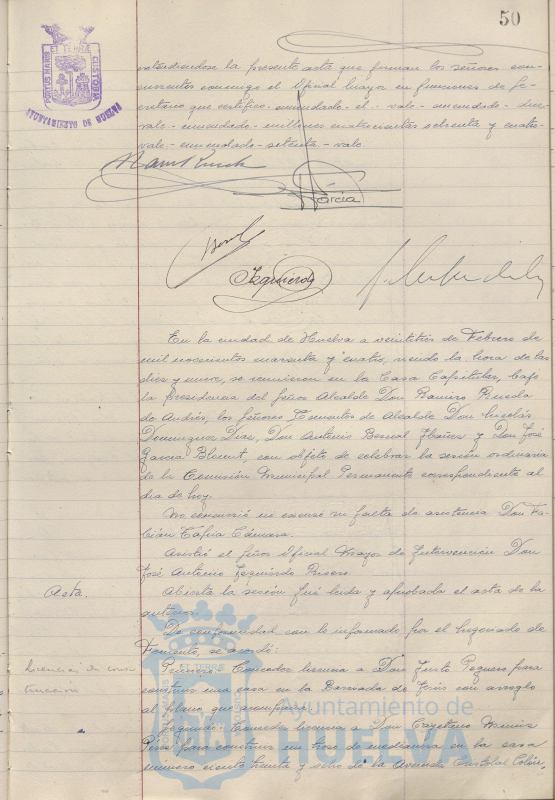 50
PORTUS MARIS ET TERRÆ CUSTODIA
AYUNTAMIENTO DE HUELVA
extendiendose la presente acta que firman los señores con-
currentes conmigo el Oficial Mayor en funciones de Se-
cretario que certifico. enmendado - el - vale - enmendado -
vale - enmendado - millones cuatrocientas setenta y cuatro
vale - enmendado - setenta - vale.
García
Izquierdo
En la ciudad de Huelva a veintitrés de Febrero de
mil novecientos cuarenta y cuatro, siendo la hora de las
diez y nueve, se reunieron en la Casa Capitular, bajo
la presidencia del Señor Alcalde Don Ramiro Pineda
de Andrés, los Señores Tenientes de Alcalde Don Nicolás
Dominguez Dias, Don Antonio Bernal Ibañez y Don José
Garcia Blecut, con objeto de celebrar la sesión ordinaria
de la Comisión Municipal Permanente correspondiente al
dia de hoy.
No concurrió ni excusó su falta de asistencia Don Fa-
bián Tapia Cámara.
Asistió el Señor Oficial Mayor de Intervención Don
José Antonio Izquierdo Rivero.
Acta.
Abierta la sesión fué leida y aprobada el acta de la
anterior.
De conformidad con lo informado por el Negociado de
Fomento, se acordó:
Licencias de cons
trucción
Primero: Conceder licencia a Don Justo Poquero para
construir una casa en la Barriada de con arreglo
al plano que acompaña.
Segundo: Conceder licencia a Don Cayetano
Perez para construir un trozo de medianera en la casa
número ciento treinta y ocho de la Avenida Cristobal Colón,
PORTUS MARIS ET TERRÆ CUSTODIA
Ayuntamiento de
HUELVA